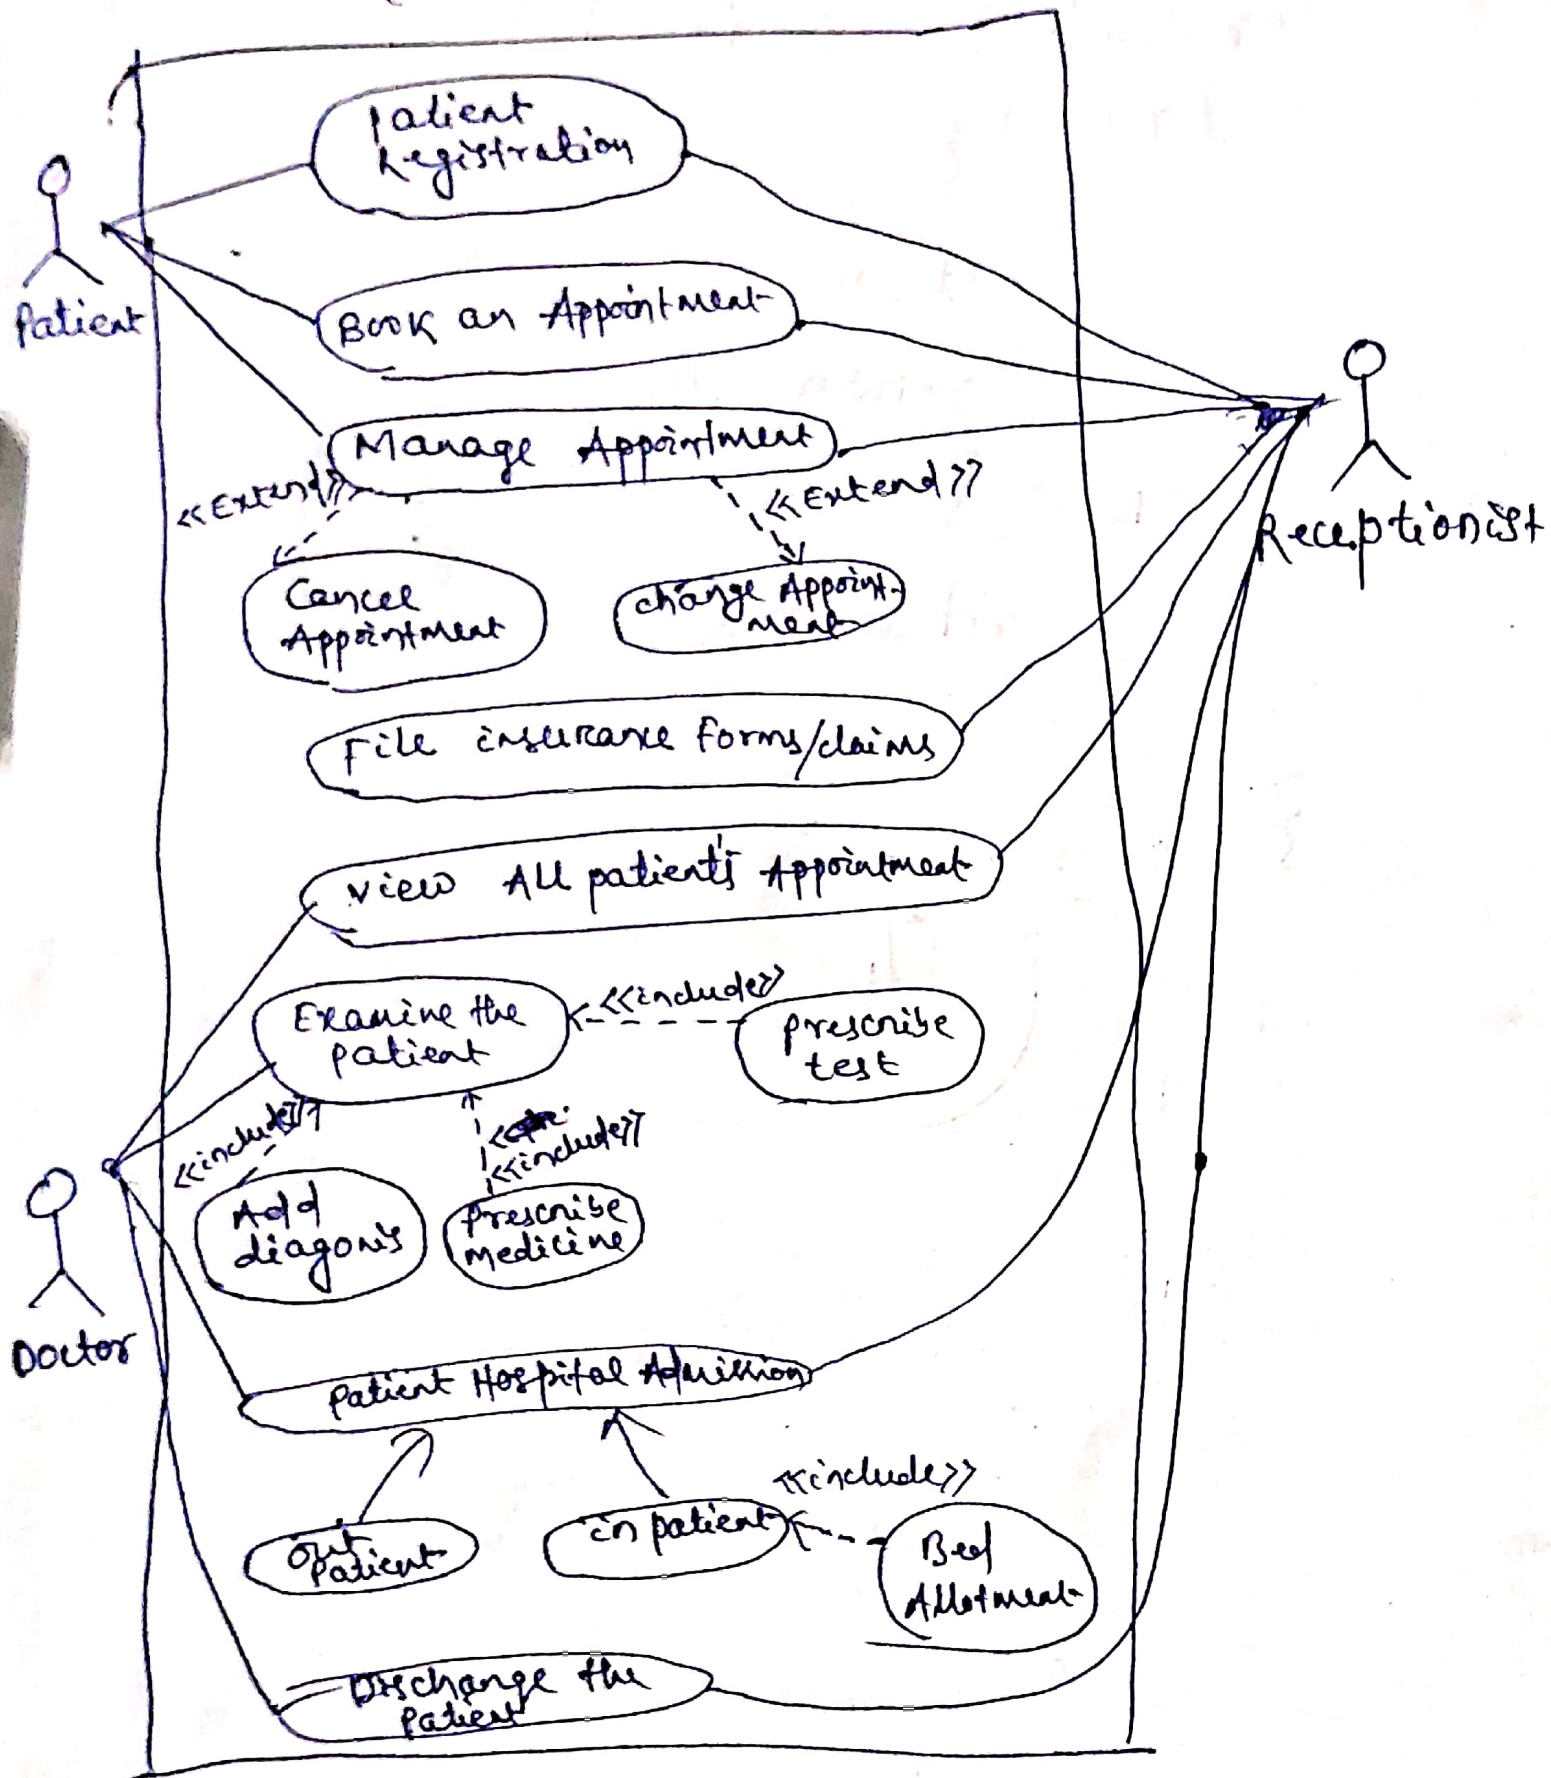 Patient
Registration
Patient
Book an Appointment
Manage Appointment
<<Extend>>
<<Extend>>
Cancel
Appointment
change Appoint-
ment
Receptionist
File insurance forms/claims
View All patient's Appointment
Examine the
patient
<<include>>
prescribe
test
<<include>>
<<include>>
Add
diagonis
prescribe
medicine
Doctor
Patient Hospital Admission
<<include>>
out
Patient
in patient
Bed
Allotment
Dischange the
Patient